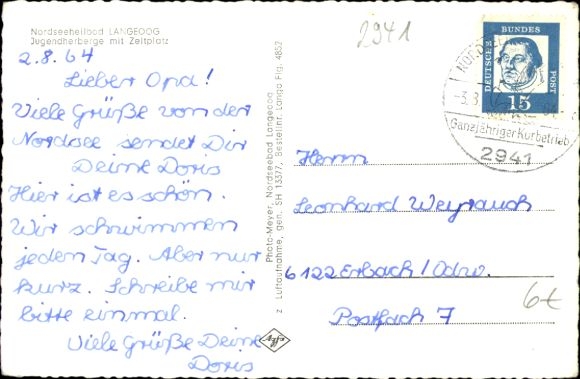 Nordseeheilbad LANGEOOG
Jugendherberge mit Zeltplatz
2.8.64
Lieber Opa!
Viele Grüße von der
Nordsee sendet Dir
Deine Doris
Hier ist es schön.
Wir schwimmen
jeden Tag. Aber nur
kurz. Schreibe mir
bitte einmal.
Viele Grüße Deine
Doris
Photo-Meyer, Nordseebad Langeoog
Luftaufnahme, gen. SH 133/7, Bestellnr. Lango Fig. 4852
2941
DEUTSCHE BUNDES POST
15
Ganzjähriger Kurbetrieb
2941
Herrn
Leonhard Weyrauch
6122 Erbach/Odw.
Postfach 7
6€